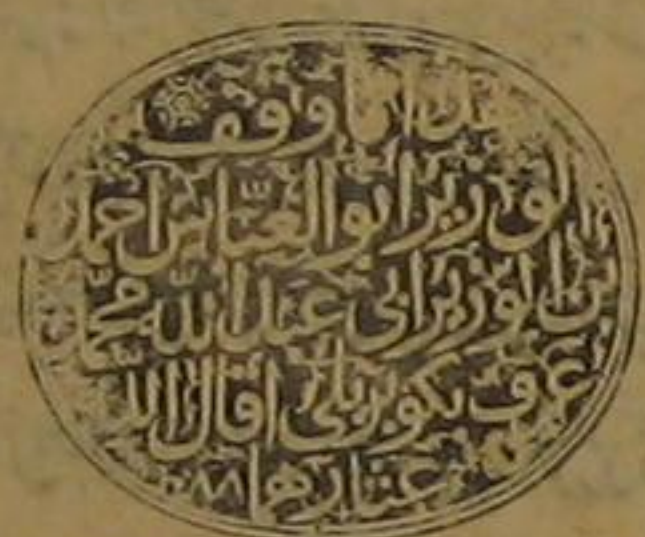 هذا ما وقف
الوزير ابو العباس احمد
ابن الوزير ابى عبد الله محمد
عرف بكوبريلى اقال الله
عثارهما ٨٨